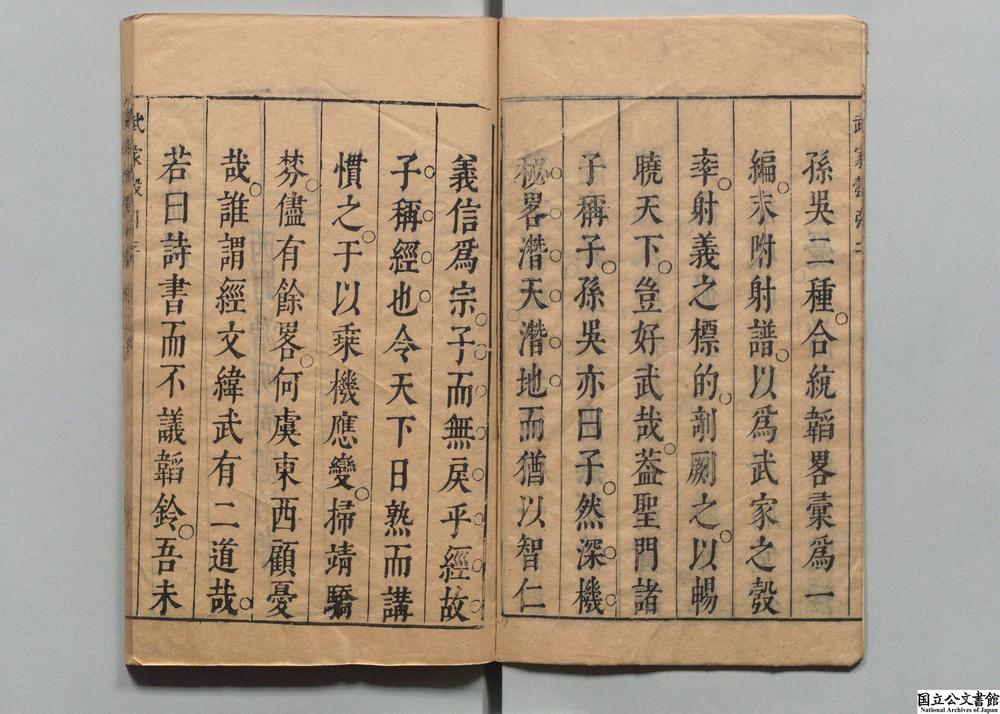 孫吳二種。合統韜畧彙爲一
編。末附射譜。以爲武家之彀
率。射義之標的。剞劂之。以暢
曉天下。豈好武哉。葢聖門諸
子稱子。孫吳亦曰子。然深機。
秘畧潛天潛地而猶以智仁
義信爲宗。子而無戾乎經。故
子稱經也。令天下日熟而講
慣之。于以乗機應變。掃靖驕
棼。儘有餘畧。何虞東西顧憂
哉。誰謂經文緯武有二道哉。
若曰詩書而不議韜鈐。吾未
武家彀
国立公文書館
National Archives of Japan